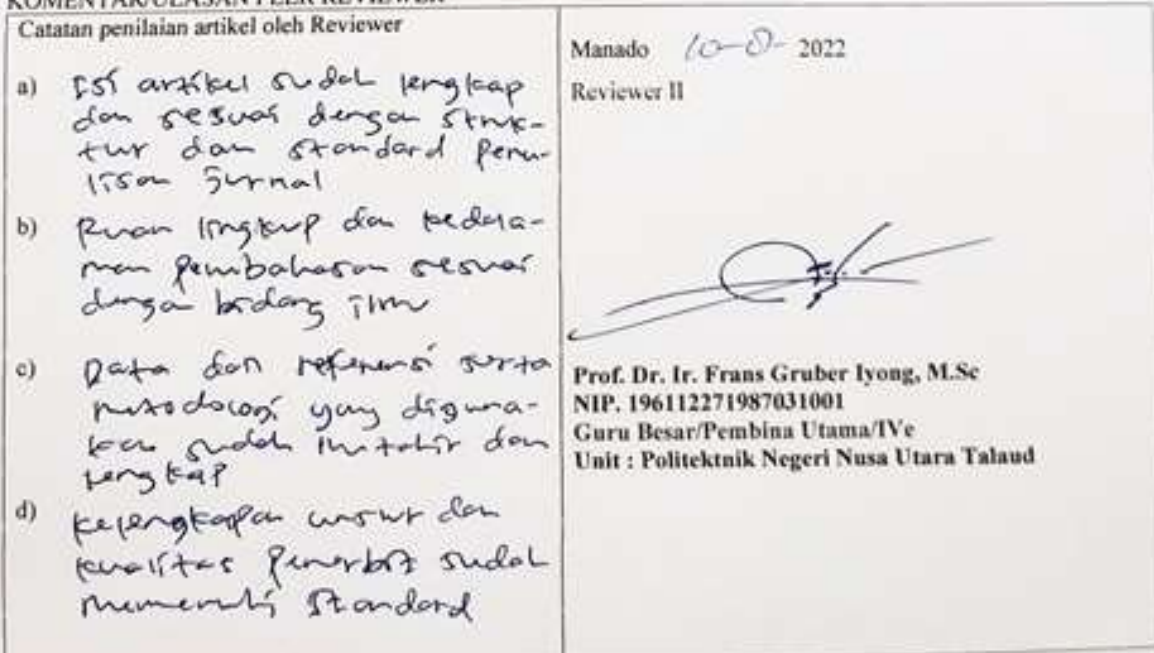 KOMENTAR/ULASAN PEER REVIEWER
Catatan penilaian artikel oleh Reviewer
a) Isi artikel sudah lengkap
dan sesuai dengan struk-
tur dan standard penu-
lisan jurnal
b) Ruan lingkup dan kedala-
man pembahasan sesuai
dengan bidang ilmu
c) Data dan referensi serta
metodologi yang diguna-
kan sudah mutahir dan
lengkap
d) kelengkapan unsur dan
kualitas penerbit sudah
memenuhi standard
Manado 10-8-2022
Reviewer II
Prof. Dr. Ir. Frans Gruber Iyong, M.Sc
NIP. 196112271987031001
Guru Besar/Pembina Utama/IVe
Unit : Politektnik Negeri Nusa Utara Talaud